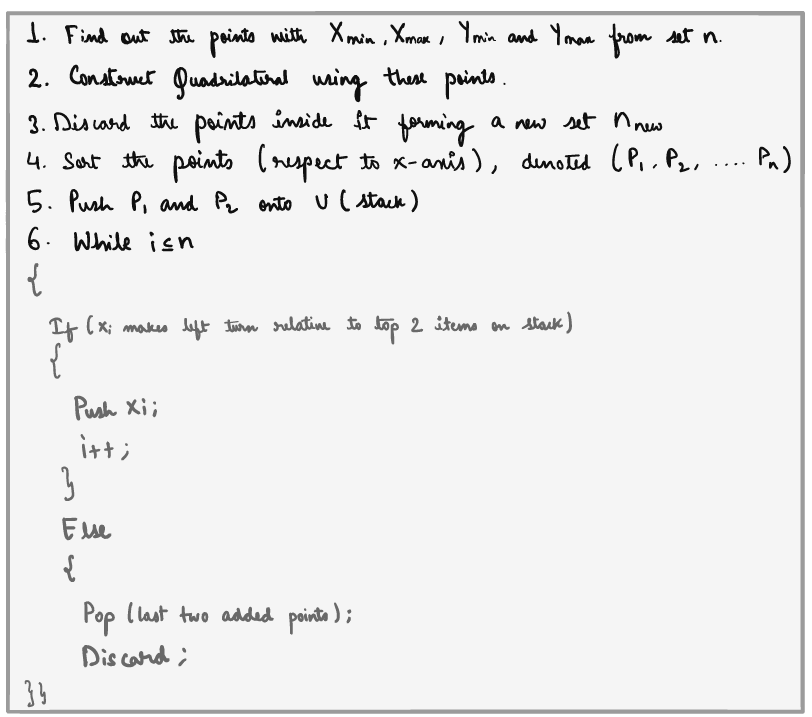 1. Find out the points with Xmin, Xmax, Ymin and Ymax from set n.
2. Construct Quadrilateral using these points.
3. Discard the points inside it forming a new set nnew
4. Sort the points (respect to x-axis), denoted (P1, P2, .... Pn)
5. Push P1 and P2 onto U (stack)
6. While i≤n
{
If (xi makes left turn relative to top 2 items on stack)
{
Push xi;
i++;
}
Else
{
Pop (last two added points);
Discard;
}}